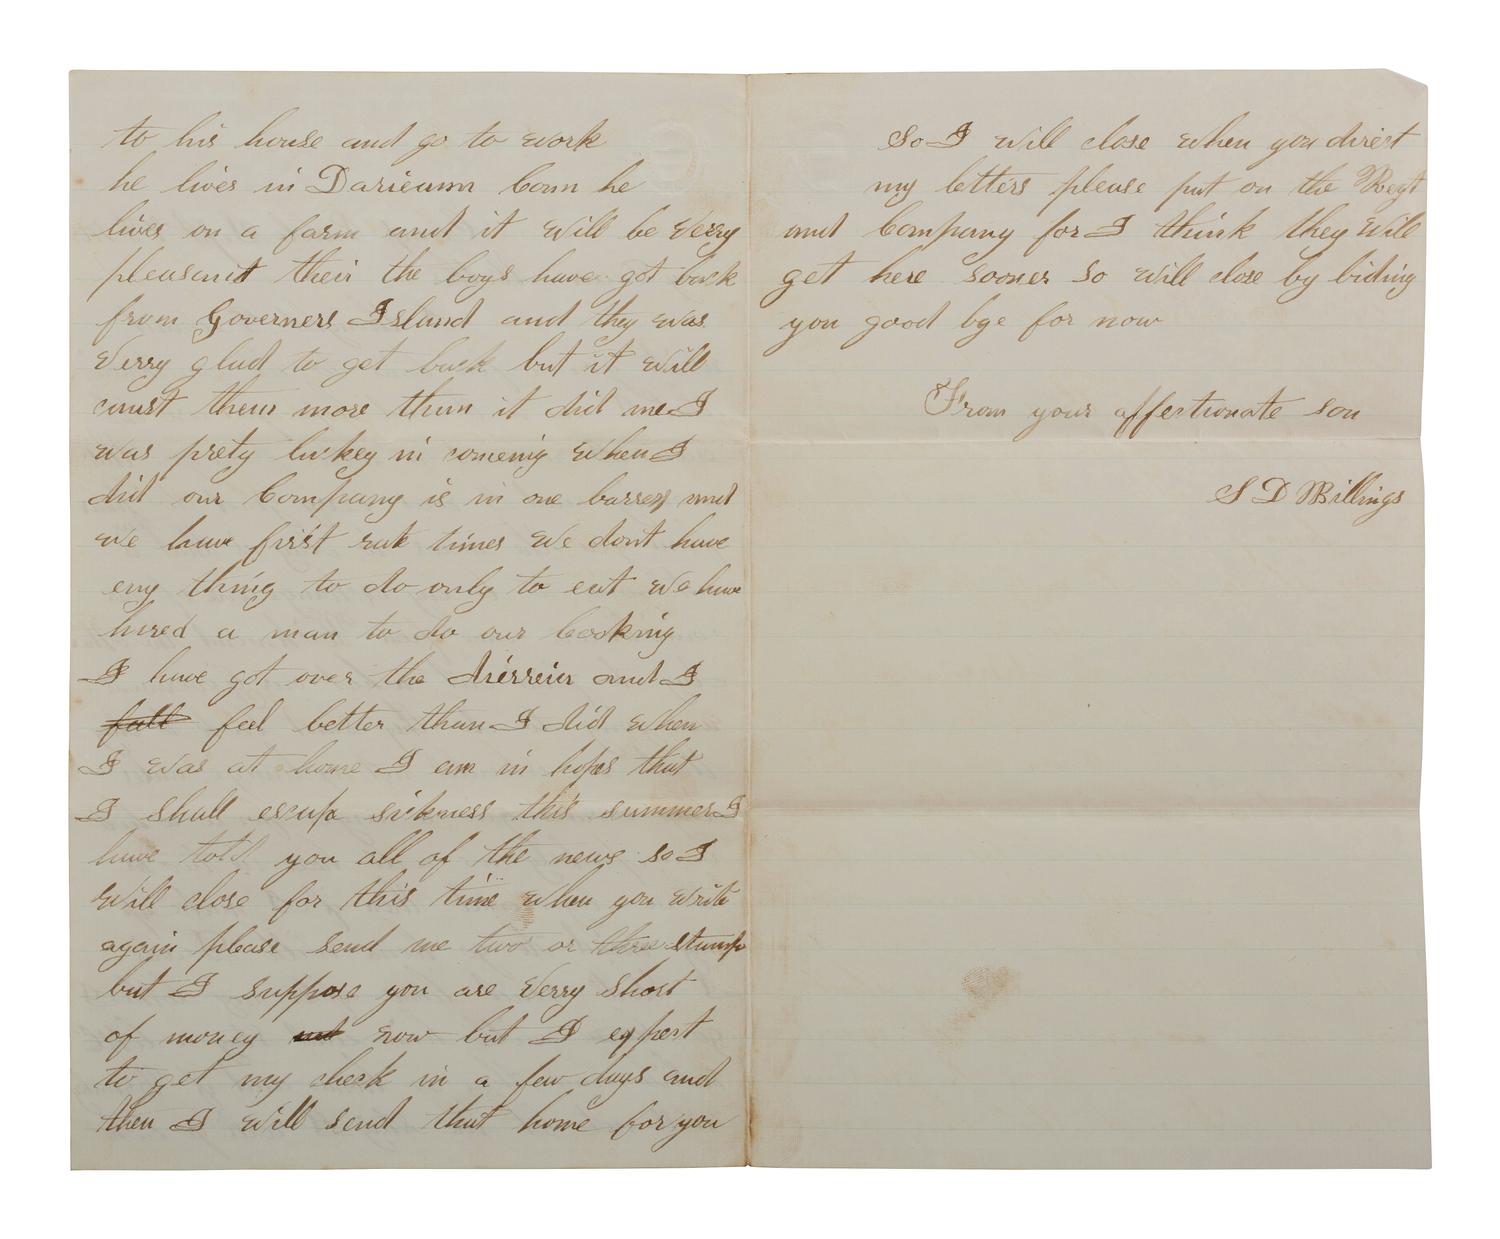 to his house and go to work
he lives in Darieann Conn he
lives on a farm and it will be verry
pleasant their the boys have got back
from Governers Island and they was
verry glad to get back but it will
coust them more than it did me I
was prety luckey in comenig when I
did our Company is in one barrey and
we have first rate times we dont have
eny thing to do only to eat we have
hired a man to do our Cooking
I have got over the and I
fall feel better than I did when
I was at home I am in hopes that
I shall escape sickness this summer I
have told you all of the news so I
will close for this time when you write
again please send me two or three stamps
but I suppose you are verry short
of money now but I expect
to get my check in a few days and
then I will send that home for you
So I will close when you direct
my letters please put on the Regt
and Company for I think they will
get here sooner so will close by biding
you good bye for now
From your affectionate son
S D Billings